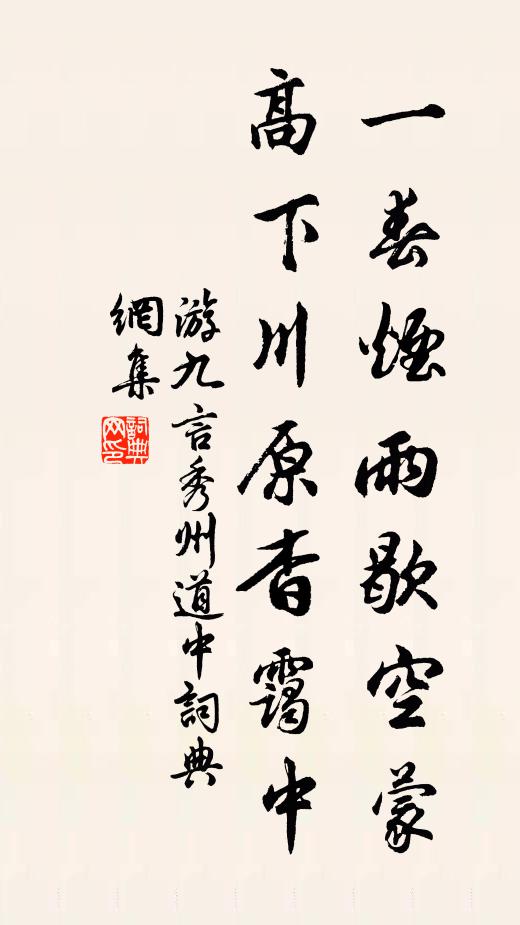 一春煙雨歇空蒙
高下川原杳靄中
游九言秀州道中詞典
網集
詞典網印